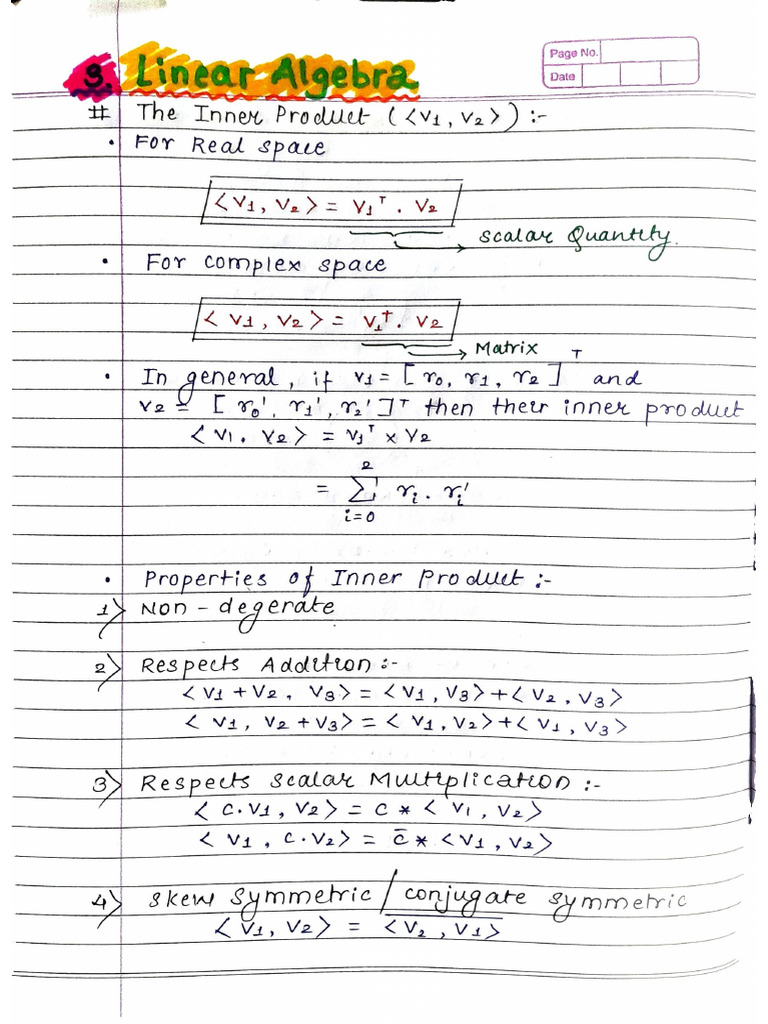 3. Linear Algebra
Page No.
Date
# The Inner Product (<V1, V2>) :-
• For Real space
<V1, V2> = V1ᵀ . V2
Scalar Quantity.
• For complex space
<V1, V2> = V1† . V2
Matrix
• In general, if V1 = [r0, r1, r2]ᵀ and
V2 = [r0', r1', r2']ᵀ then their inner product
<V1 . V2> = V1ᵀ × V2
2
= Σ ri . ri'
i=0
• Properties of Inner Product :-
1) Non - degerate
2) Respects Addition :-
<V1 + V2, V3> = <V1, V3> + <V2, V3>
<V1, V2 + V3> = <V1, V2> + <V1, V3>
3) Respects Scalar Multiplication :-
<C.V1, V2> = C * <V1, V2>
<V1, C.V2> = C̅ * <V1, V2>
4) Skew Symmetric / conjugate symmetric
<V1, V2> = <V̅2̅,̅ ̅V̅1̅>